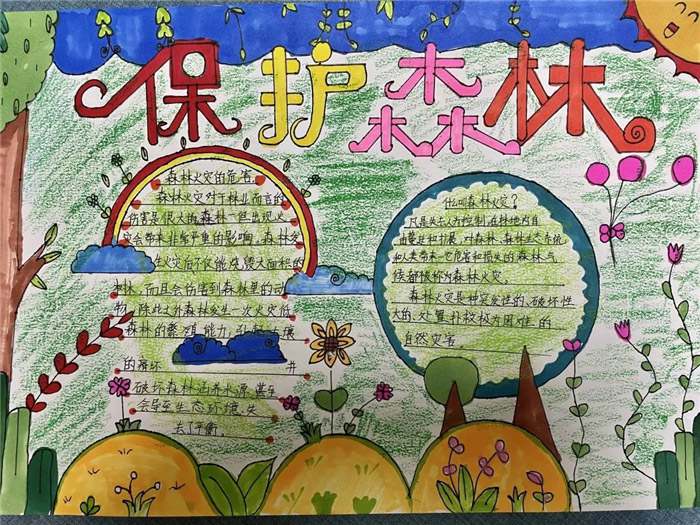 保护森林
森林火灾的危害
森林火灾对于林业而言的
伤害是很大的森林一旦出现火
灾会带来非常严重的影响，森林发
生火灾后不仅能烧毁大面积的
林，而且会伤害到森林里的动
物，除此之外森林发生一次火灾低
森林的繁殖能力，引起土壤
的瘠坏 并
破坏森林涵养水源，甚至
会导至生态环境失
去了平衡。
什么叫森林火灾？
凡是失去人为控制，在林地内自
由蔓延和扩展，对森林、森林生态系统
和人类带来一定危害和损失的森林
候都被称为森林火灾。
森林火灾是种突发性的、破坏性
大的、处置扑救极为困难的
自然灾害